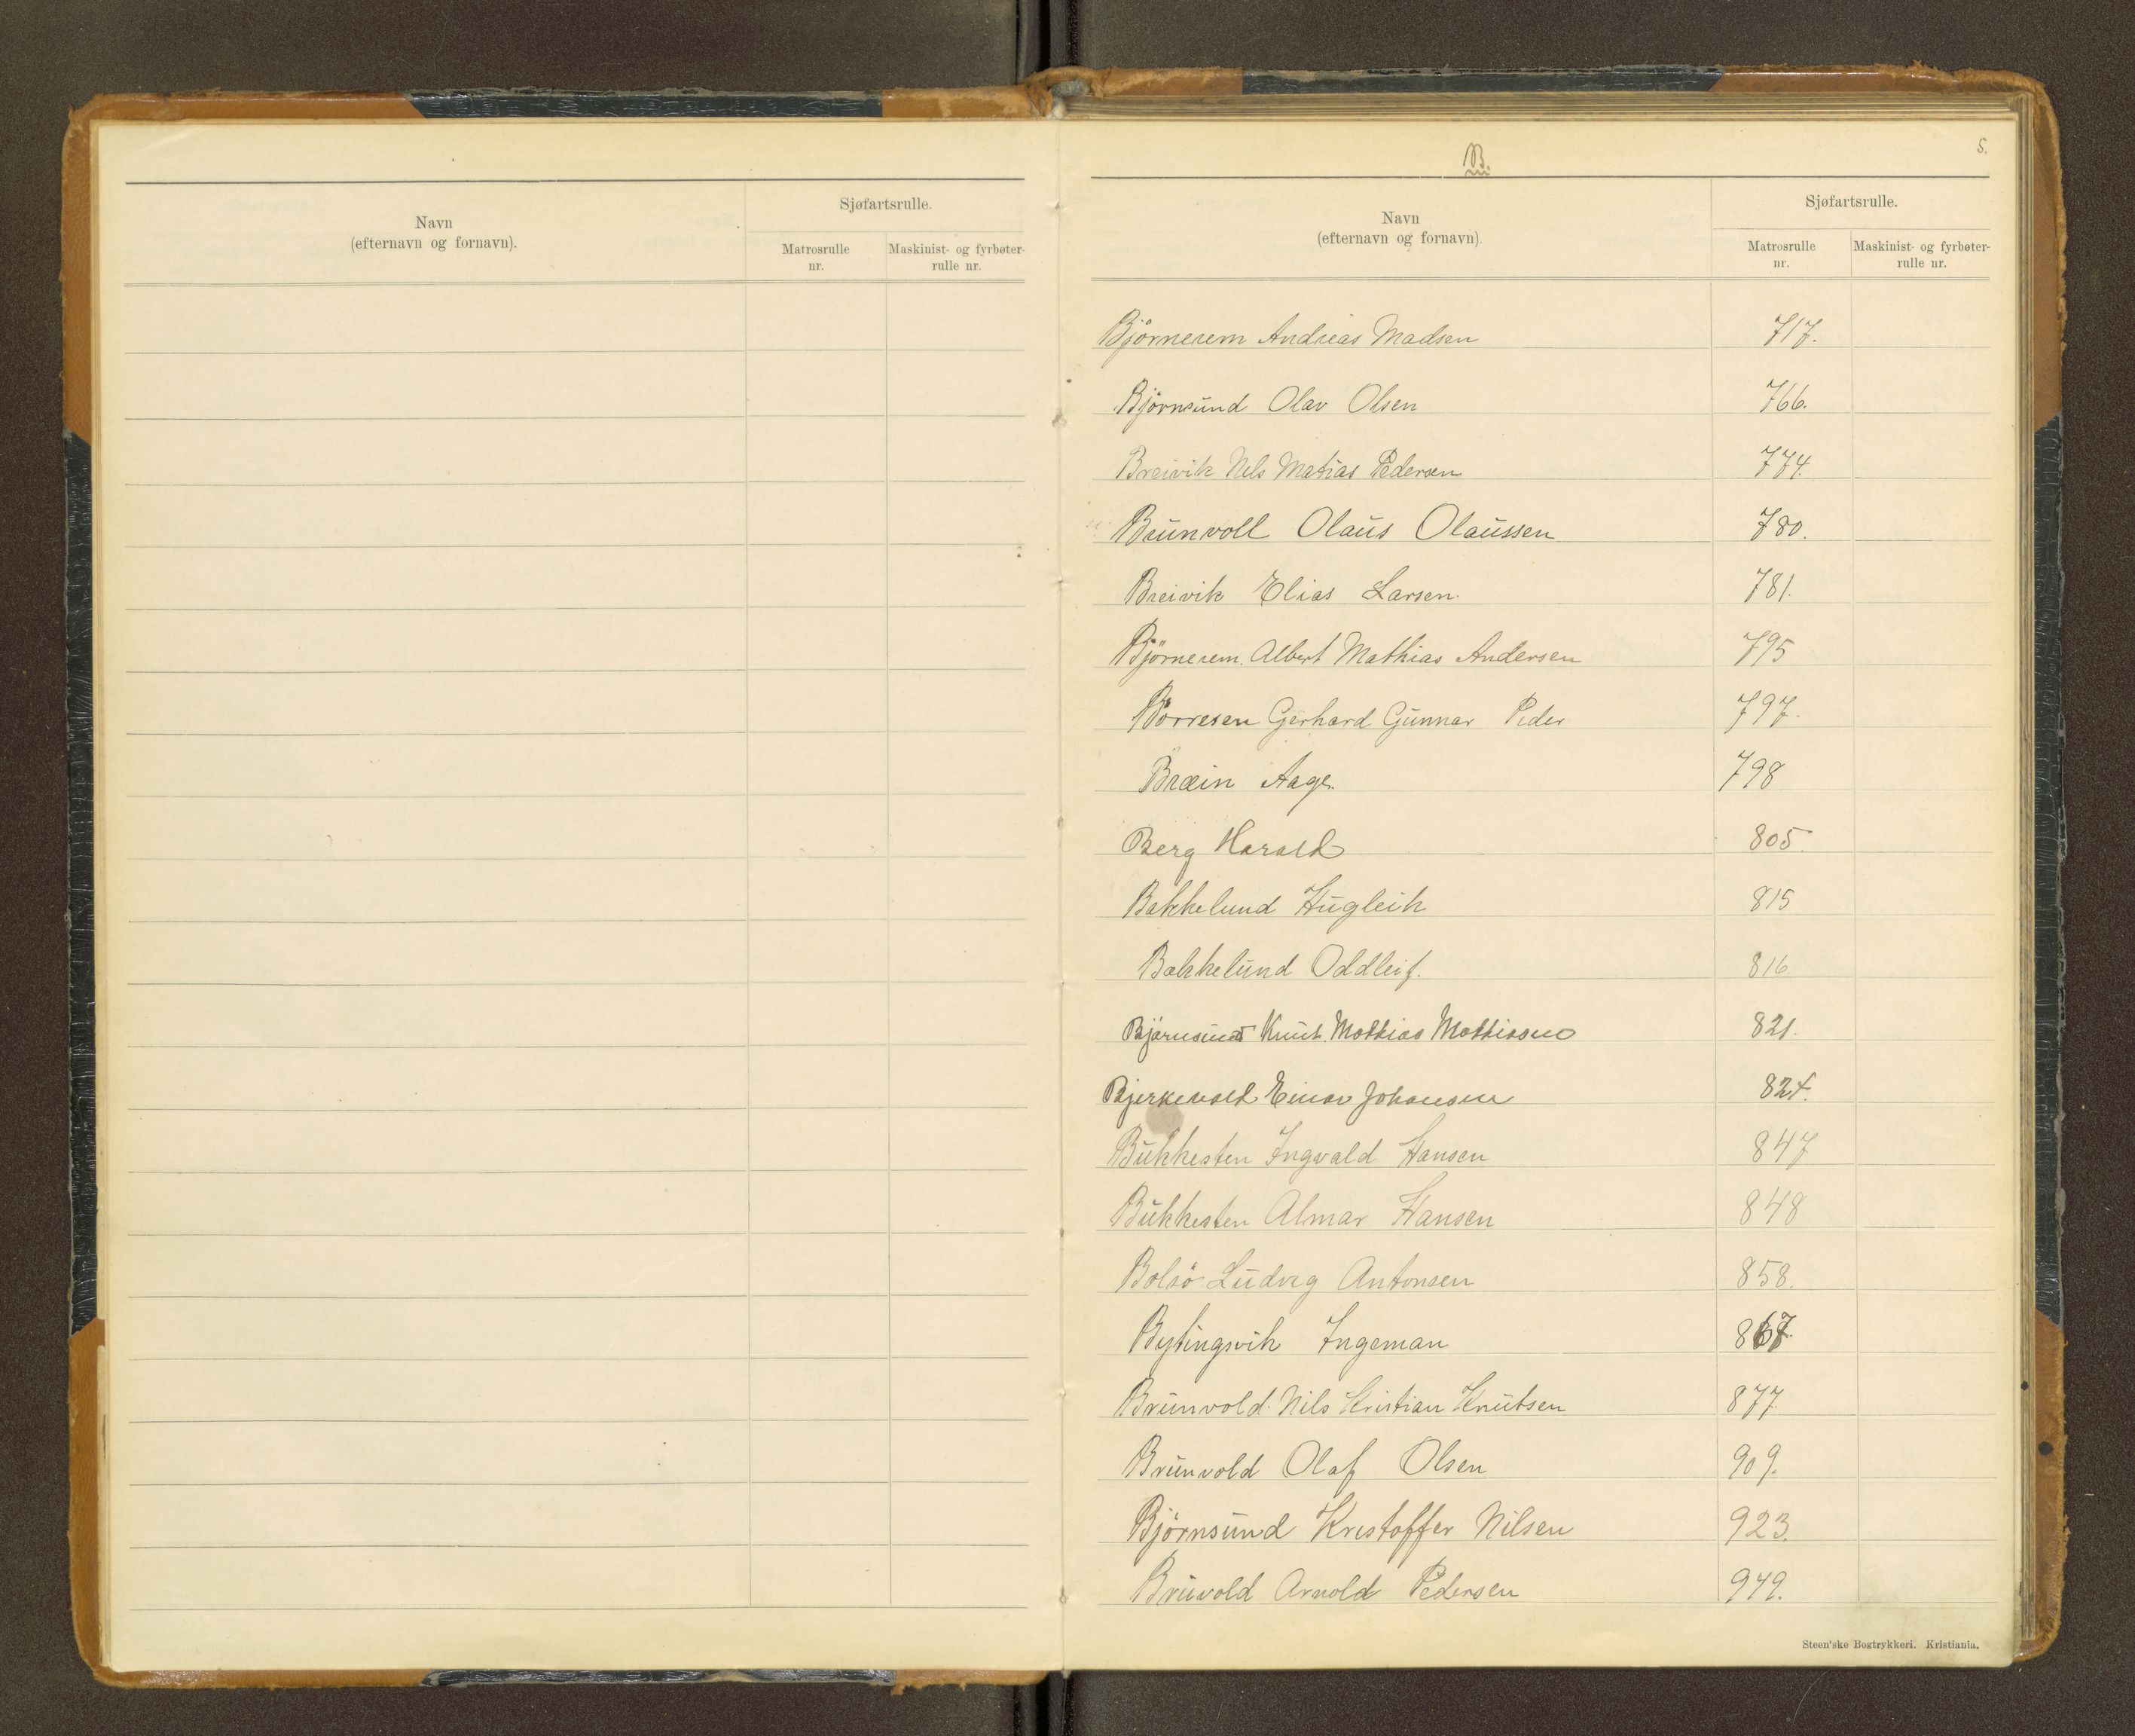 Navn
(efternavn og fornavn).
Sjøfartsrulle.
Matrosrulle
nr.
Maskinist- og fyrbøter-
rulle nr.
B.
5.
Navn
(efternavn og fornavn).
Sjøfartsrulle.
Matrosrulle
nr.
Maskinist- og fyrbøter-
rulle nr.
Björnerem Andreas Madsen 717.
Björnsund Olav Olsen 766.
Breivik Nils Matias Pedersen 774.
Brunvoll Olaus Olaussen 780.
Breivik Elias Larsen. 781.
Björnerem Albert Mathias Andersen 795
Börresen Gerhard Gunnar Peder 797.
Bræin Aage. 798
Berg Harald 805
Bakkelund Hugleik 815
Bakkelund Oddleif. 816
Björnsund Knut Mathias Mathissen 821.
Bjerkevold Einar Johansen 824.
Bukkesten Ingvald Hansen 847
Bukkesten Almar Hansen 848
Bolsö Ludvig Antonsen 858.
Bytingsvik Ingeman 867
Brunvold Nils Kristian Knutsen 877
Brunvold Olaf Olsen 909.
Björnsund Kristoffer Nilsen 923.
Bruvold Arnold Pedersen 949.
Steen'ske Bogtrykkeri. Kristiania.